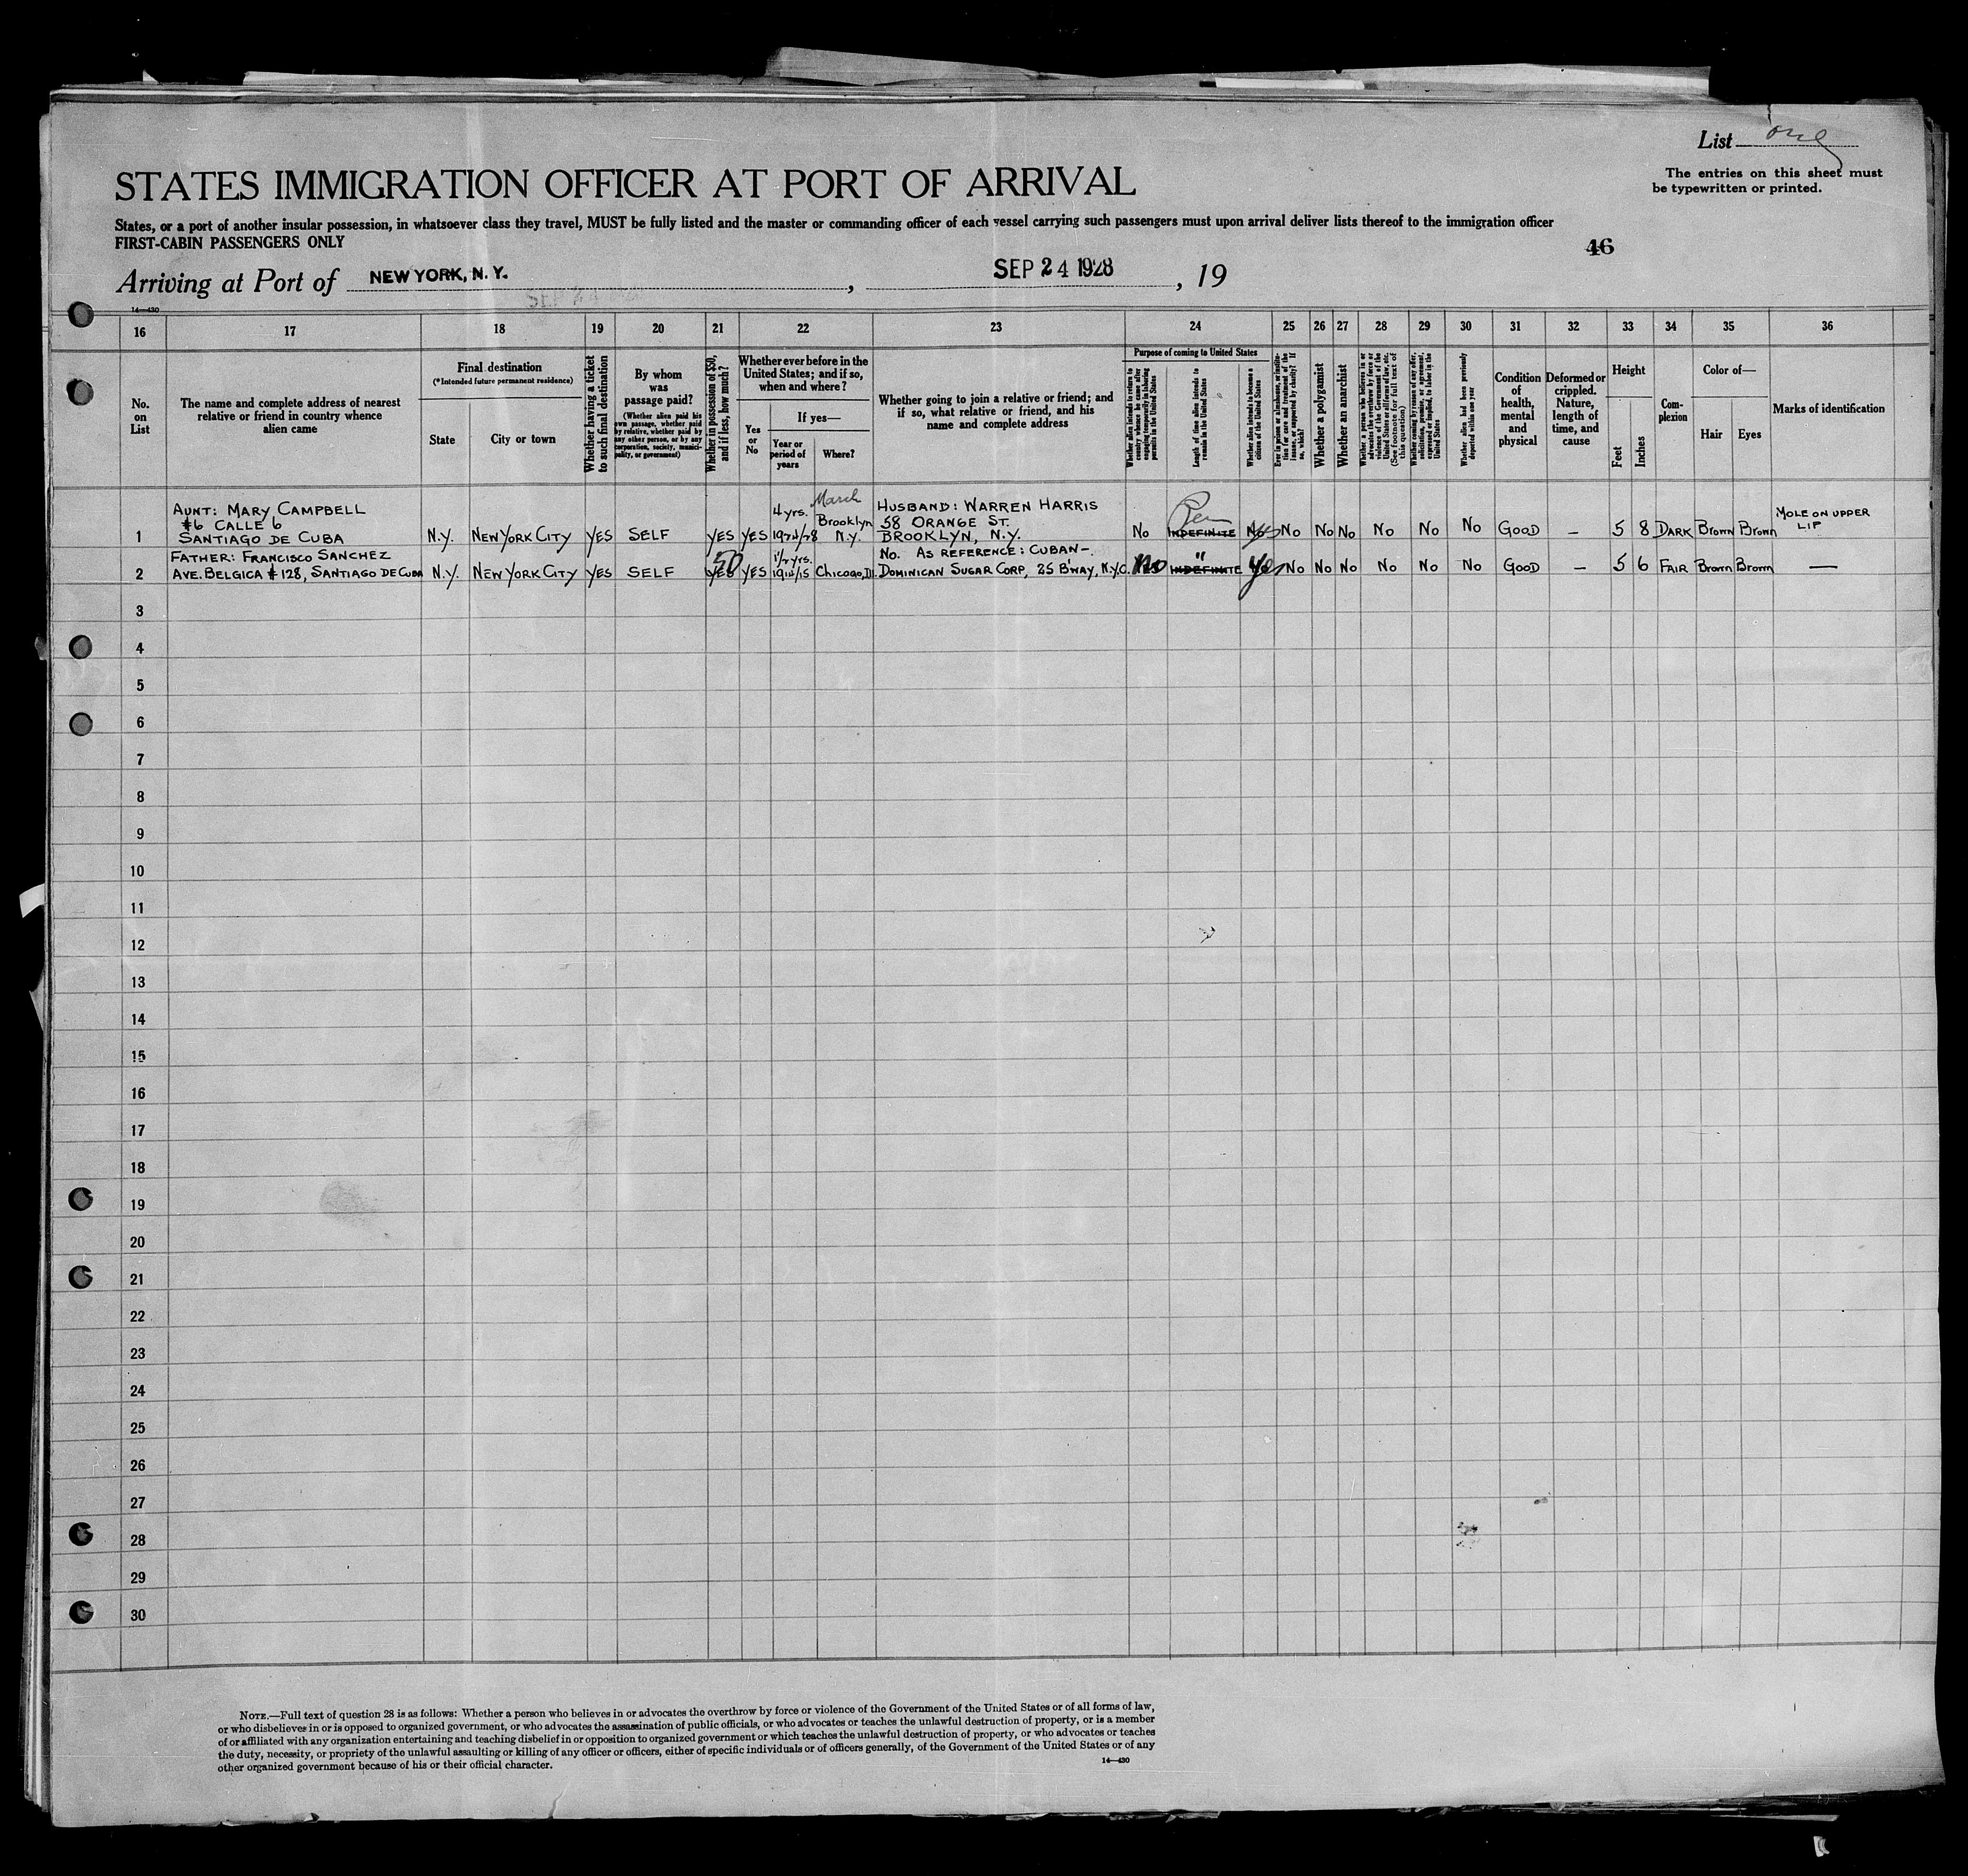 List one
The entries on this sheet must
be typewritten or printed.
STATES IMMIGRATION OFFICER AT PORT OF ARRIVAL
States, or a port of another insular possession, in whatsoever class they travel, MUST be fully listed and the master or commanding officer of each vessel carrying such passengers must upon arrival deliver lists thereof to the immigration officer
FIRST-CABIN PASSENGERS ONLY
46
Arriving at Port of NEW YORK, N. Y. , SEP 24 1928 , 19
14—430
16 17 18 19 20 21 22 23 24 25 26 27 28 29 30 31 32 33 34 35 36
No.
on
List
The name and complete address of nearest
relative or friend in country whence
alien came
Final destination
(*Intended future permanent residence)
State
City or town
Whether having a ticket
to such final destination
By whom
was
passage paid?
(Whether alien paid his
own passage, whether paid
by relative, whether paid by
any other person, or by any
corporation, society, munici-
pality, or government)
Whether in possession of $50,
and if less, how much?
Whether ever before in the
United States; and if so,
when and where?
Yes
or
No
If yes—
Year or
period of
years
Where?
Whether going to join a relative or friend; and
if so, what relative or friend, and his
name and complete address
Purpose of coming to United States
Whether alien intends to return to
country whence he came after
engaging temporarily in laboring
pursuits in the United States
Length of time alien intends to
remain in the United States
Whether alien intends to become a
citizen of the United States
Ever in prison or almshouse, or institu-
tion for care and treatment of the
insane, or supported by charity? If
so, which?
Whether a polygamist
Whether an anarchist
Whether a person who believes in or
advocates the overthrow by force or
violence of the Government of the
United States or all forms of law, etc.
(See footnote for full text of
this question)
Whether coming by reason of any offer,
solicitation, promise, or agreement,
expressed or implied, to labor in the
United States
Whether alien had been previously
deported within one year
Condition
of
health,
mental
and
physical
Deformed or
crippled.
Nature,
length of
time, and
cause
Height
Feet
Inches
Com-
plexion
Color of—
Hair
Eyes
Marks of identification
1
AUNT: MARY CAMPBELL
#6 CALLE 6
SANTIAGO DE CUBA
N.Y. NEW YORK CITY YES SELF YES YES
4 yrs.
1924/28
March
Brooklyn
N.Y.
HUSBAND: WARREN HARRIS
58 ORANGE ST.
BROOKLYN, N.Y.
No
Per
INDEFINITE
No No No No No No GOOD — 5 8 DARK Brown Brown
MOLE ON UPPER
LIP
2
FATHER: FRANCISCO SANCHEZ
AVE. BELGICA #128, SANTIAGO DE CUBA
N.Y. NEW YORK CITY YES SELF
50
YES YES
1 1/2 yrs.
1914/15 Chicago, Ill.
No. AS REFERENCE: CUBAN-
DOMINICAN SUGAR CORP, 25 B'WAY, N.Y.C.
No
"
INDEFINITE
Yes No No No No No No GOOD — 5 6 FAIR Brown Brown —
3
4
5
6
7
8
9
10
11
12
13
14
15
16
17
18
19
20
21
22
23
24
25
26
27
28
29
30
NOTE.—Full text of question 28 is as follows: Whether a person who believes in or advocates the overthrow by force or violence of the Government of the United States or of all forms of law,
or who disbelieves in or is opposed to organized government, or who advocates the assassination of public officials, or who advocates or teaches the unlawful destruction of property, or is a member
of or affiliated with any organization entertaining and teaching disbelief in or opposition to organized government or which teaches the unlawful destruction of property, or who advocates or teaches
the duty, necessity, or propriety of the unlawful assaulting or killing of any officer or officers, either of specific individuals or of officers generally, of the Government of the United States or of any
other organized government because of his or their official character.
14—430